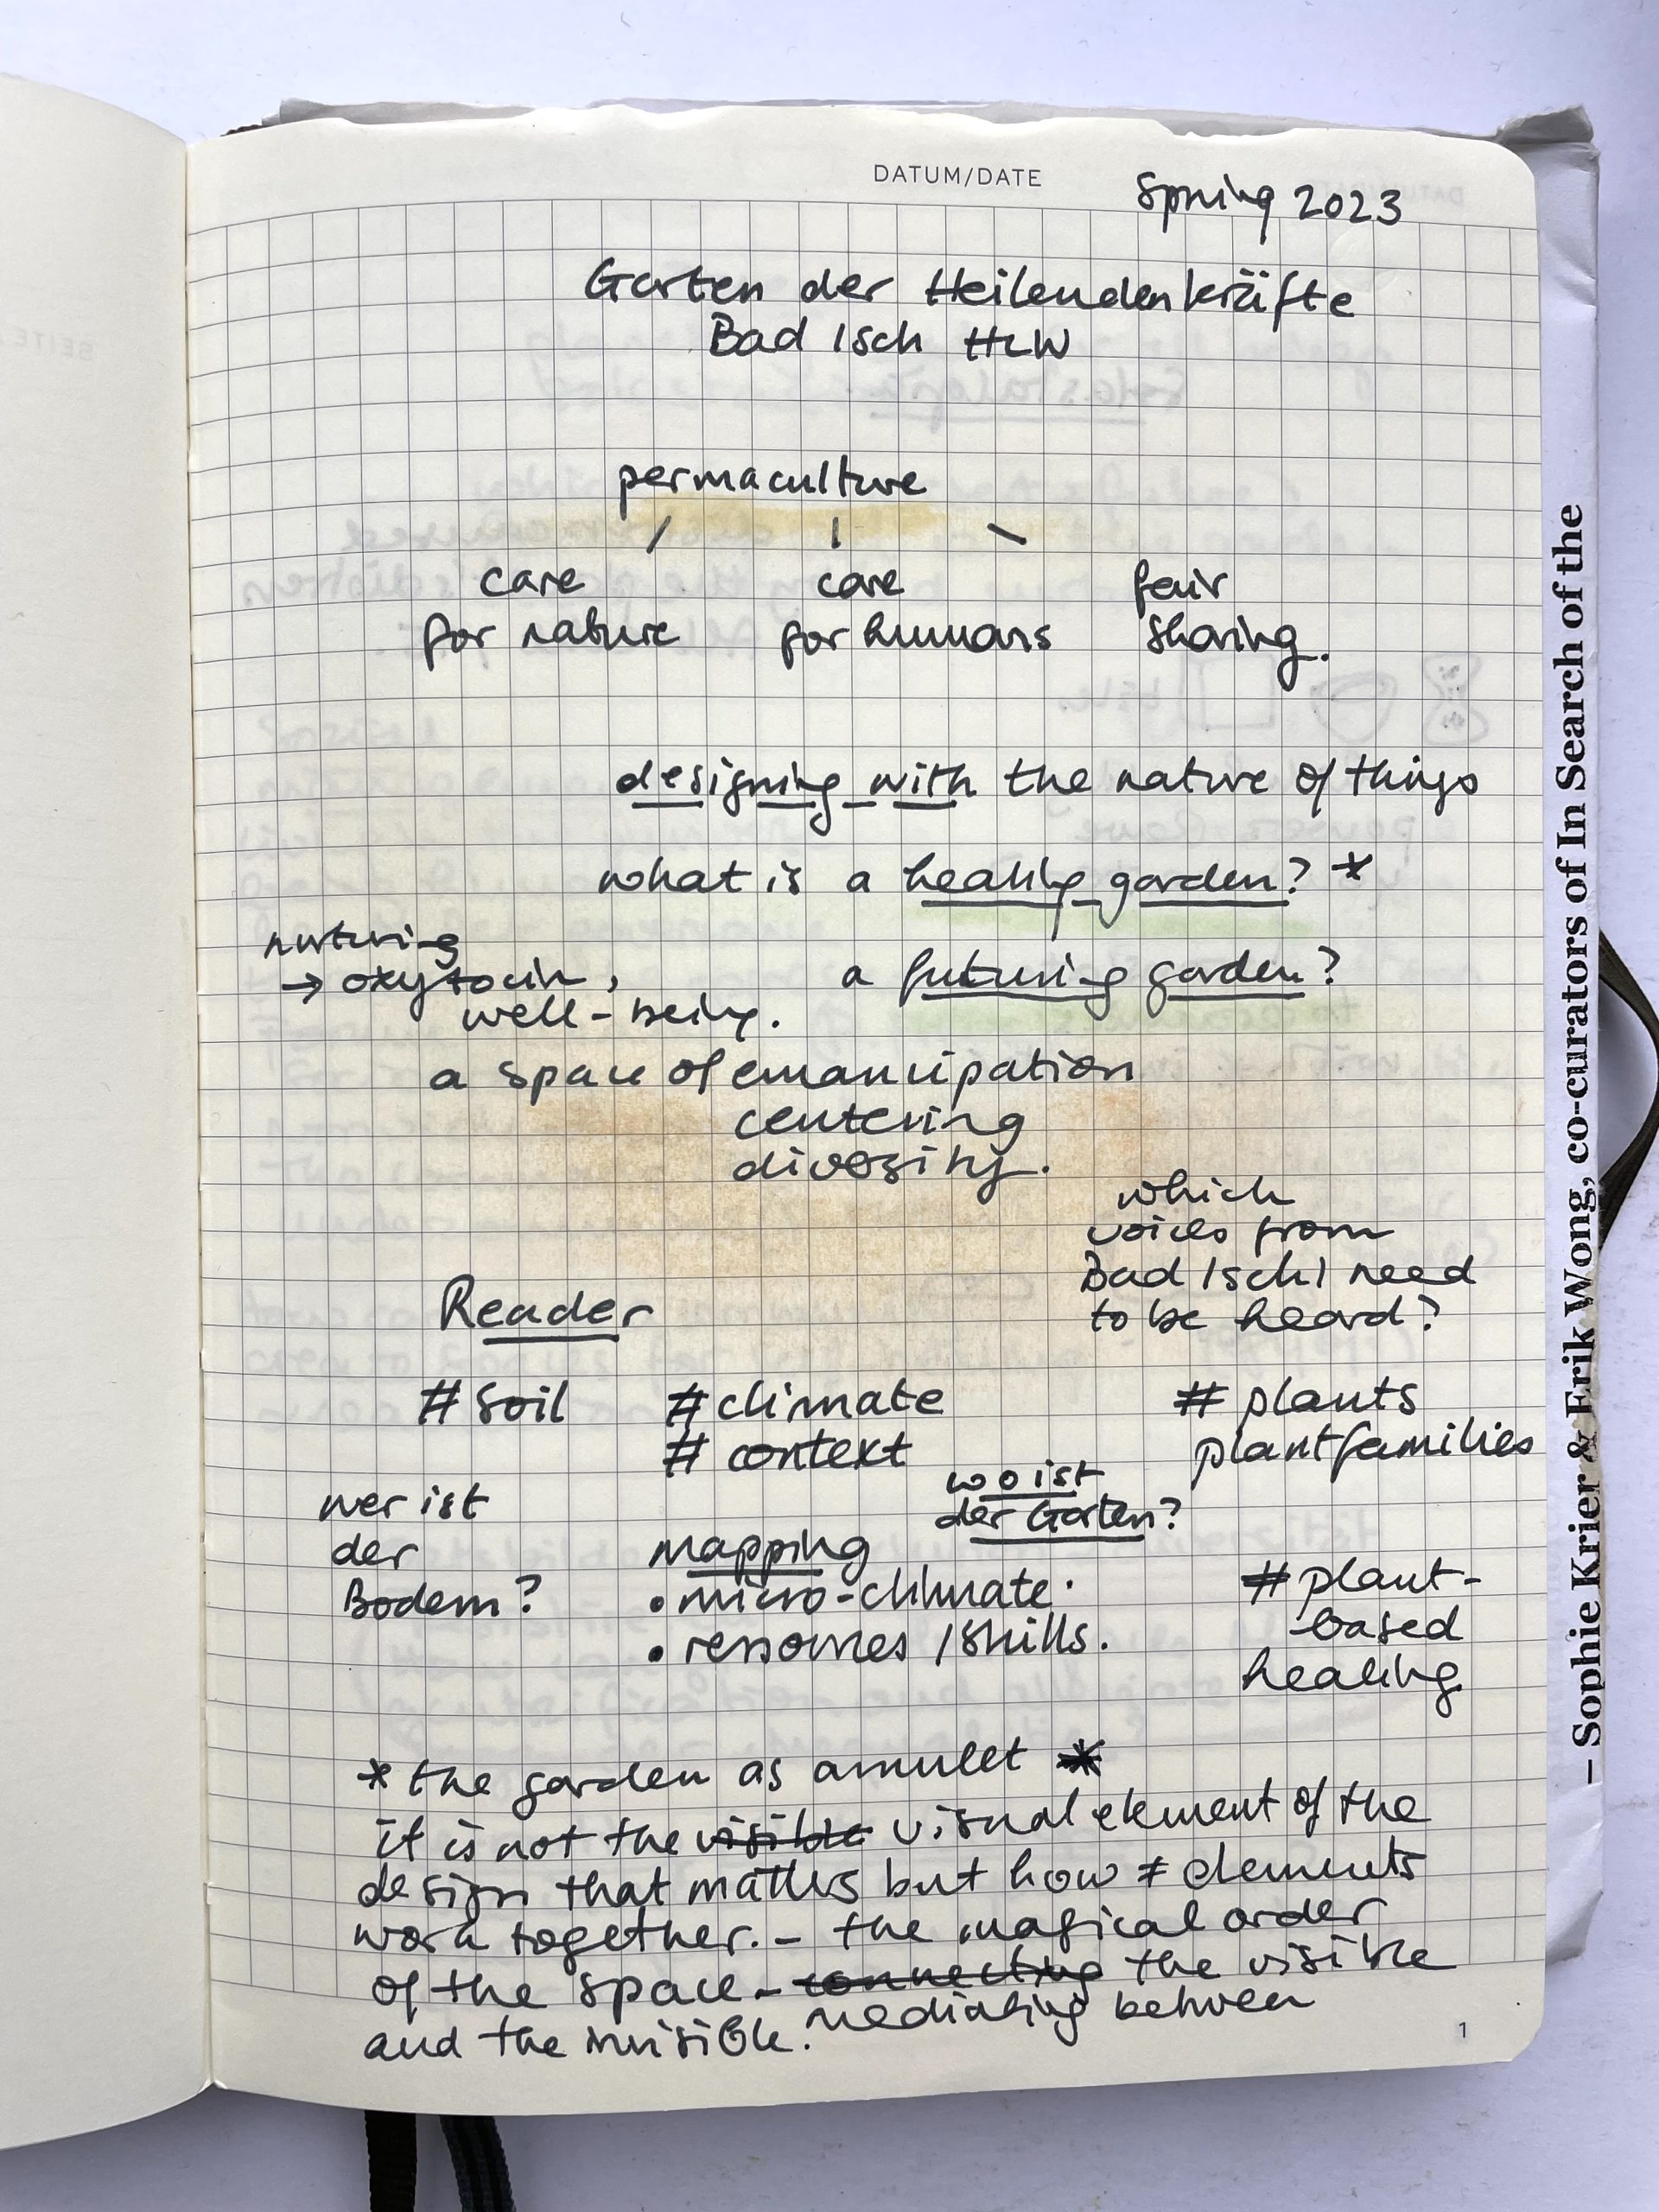 DATUM/DATE
Spring 2023
Garten der Heilendenkräfte
Bad Isch HLW
permaculture
care
for nature
care
for humans
fair
sharing.
designing with the nature of things
what is a healing garden? *
nurturing
→ oxytocin,
well-being.
a futuring garden?
a space of emancipation
centering
diversity.
which
voices from
Bad Ischl need
to be heard?
Reader
# soil
# climate
# context
# plants
plantfamilies
wer ist
der
Bodem?
wo ist
der Garten?
mapping
• micro-climate.
• ressources / skills.
# plant-
based
healing
* the garden as amulet *
it is not the visible visual element of the
design that matters but how ≠ elements
work together. – the magical order
of the space – connecting the visible
mediating between
and the invisible.
1
– Sophie Krier & Erik Wong, co-curators of In Search of the